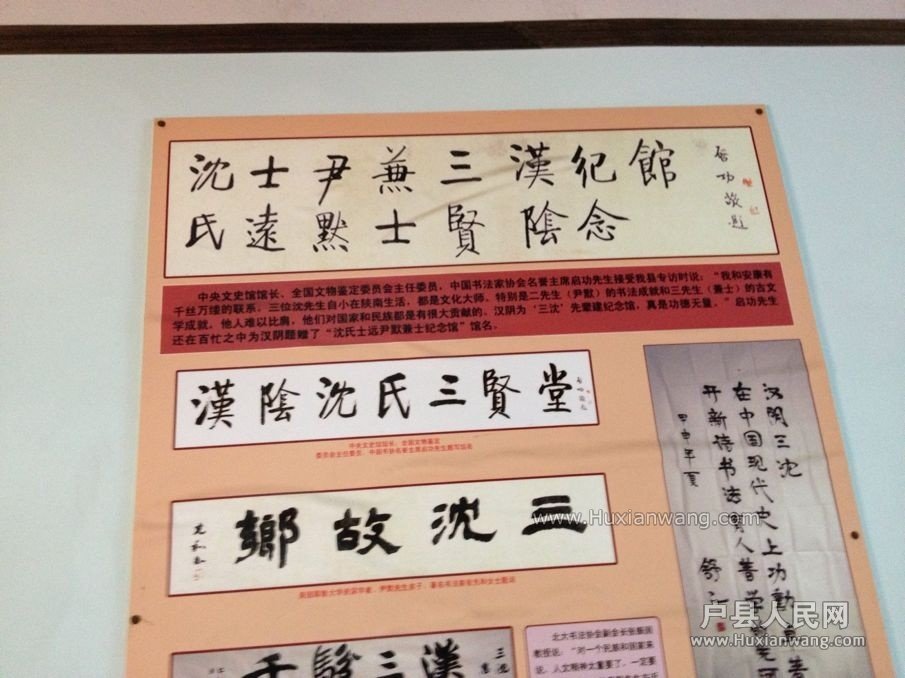 沈士尹兼三漢紀館
氏遠默士賢陰念
启功敬題
中央文史馆馆长、全国文物鉴定委员会主任委员，中国书法家协会名誉主席启功先生接受我县专访时说：“我和安康有
千丝万缕的联系。三位沈先生自小在陕南生活，都是文化大师。特别是二先生（尹默）的书法成就和三先生（兼士）的古文
学成就，他人难以比肩，他们对国家和民族都是有很大贡献的。汉阴为‘三沈’先辈建纪念馆，真是功德无量。”启功先生
还在百忙之中为汉阴题赠了“沈氏士远尹默兼士纪念馆”馆名。
漢陰沈氏三賢堂
中央文史馆馆长、全国文物鉴定
委员会主任委员、中国书协名誉主席启功先生题写馆名
三沈故鄉
汉阴三沈
在中国现代史上功勳
开新诗书法
甲申年夏
漢三賢
北大书法协会副会长张振国
教授说：“对一个民族和国家来
说，人文精神太重要了，一定要
www.Huxianwang.com
户县人民网
www.Huxianwang.com